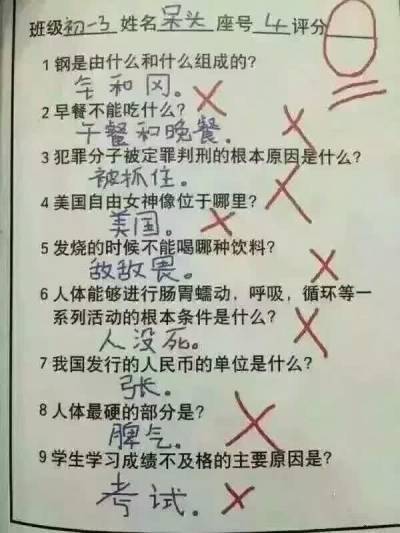 班级初一3姓名呆头座号4评分0
1钢是由什么和什么组成的?
钅和冈。
2早餐不能吃什么?
午餐和晚餐。
3犯罪分子被定罪判刑的根本原因是什么?
被抓住。
4美国自由女神像位于哪里?
美国。
5发烧的时候不能喝哪种饮料?
敌敌畏。
6人体能够进行肠胃蠕动,呼吸,循环等一
系列活动的根本条件是什么?
人没死。
7我国发行的人民币的单位是什么?
张。
8人体最硬的部分是?
脾气。
9学生学习成绩不及格的主要原因是?
考试。